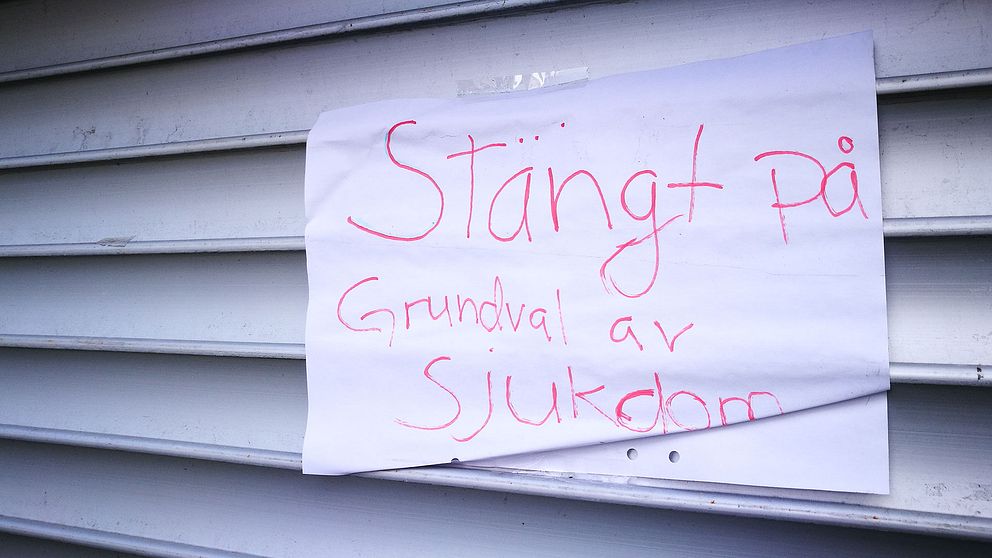 Stängt på
Grundval av
Sjukdom